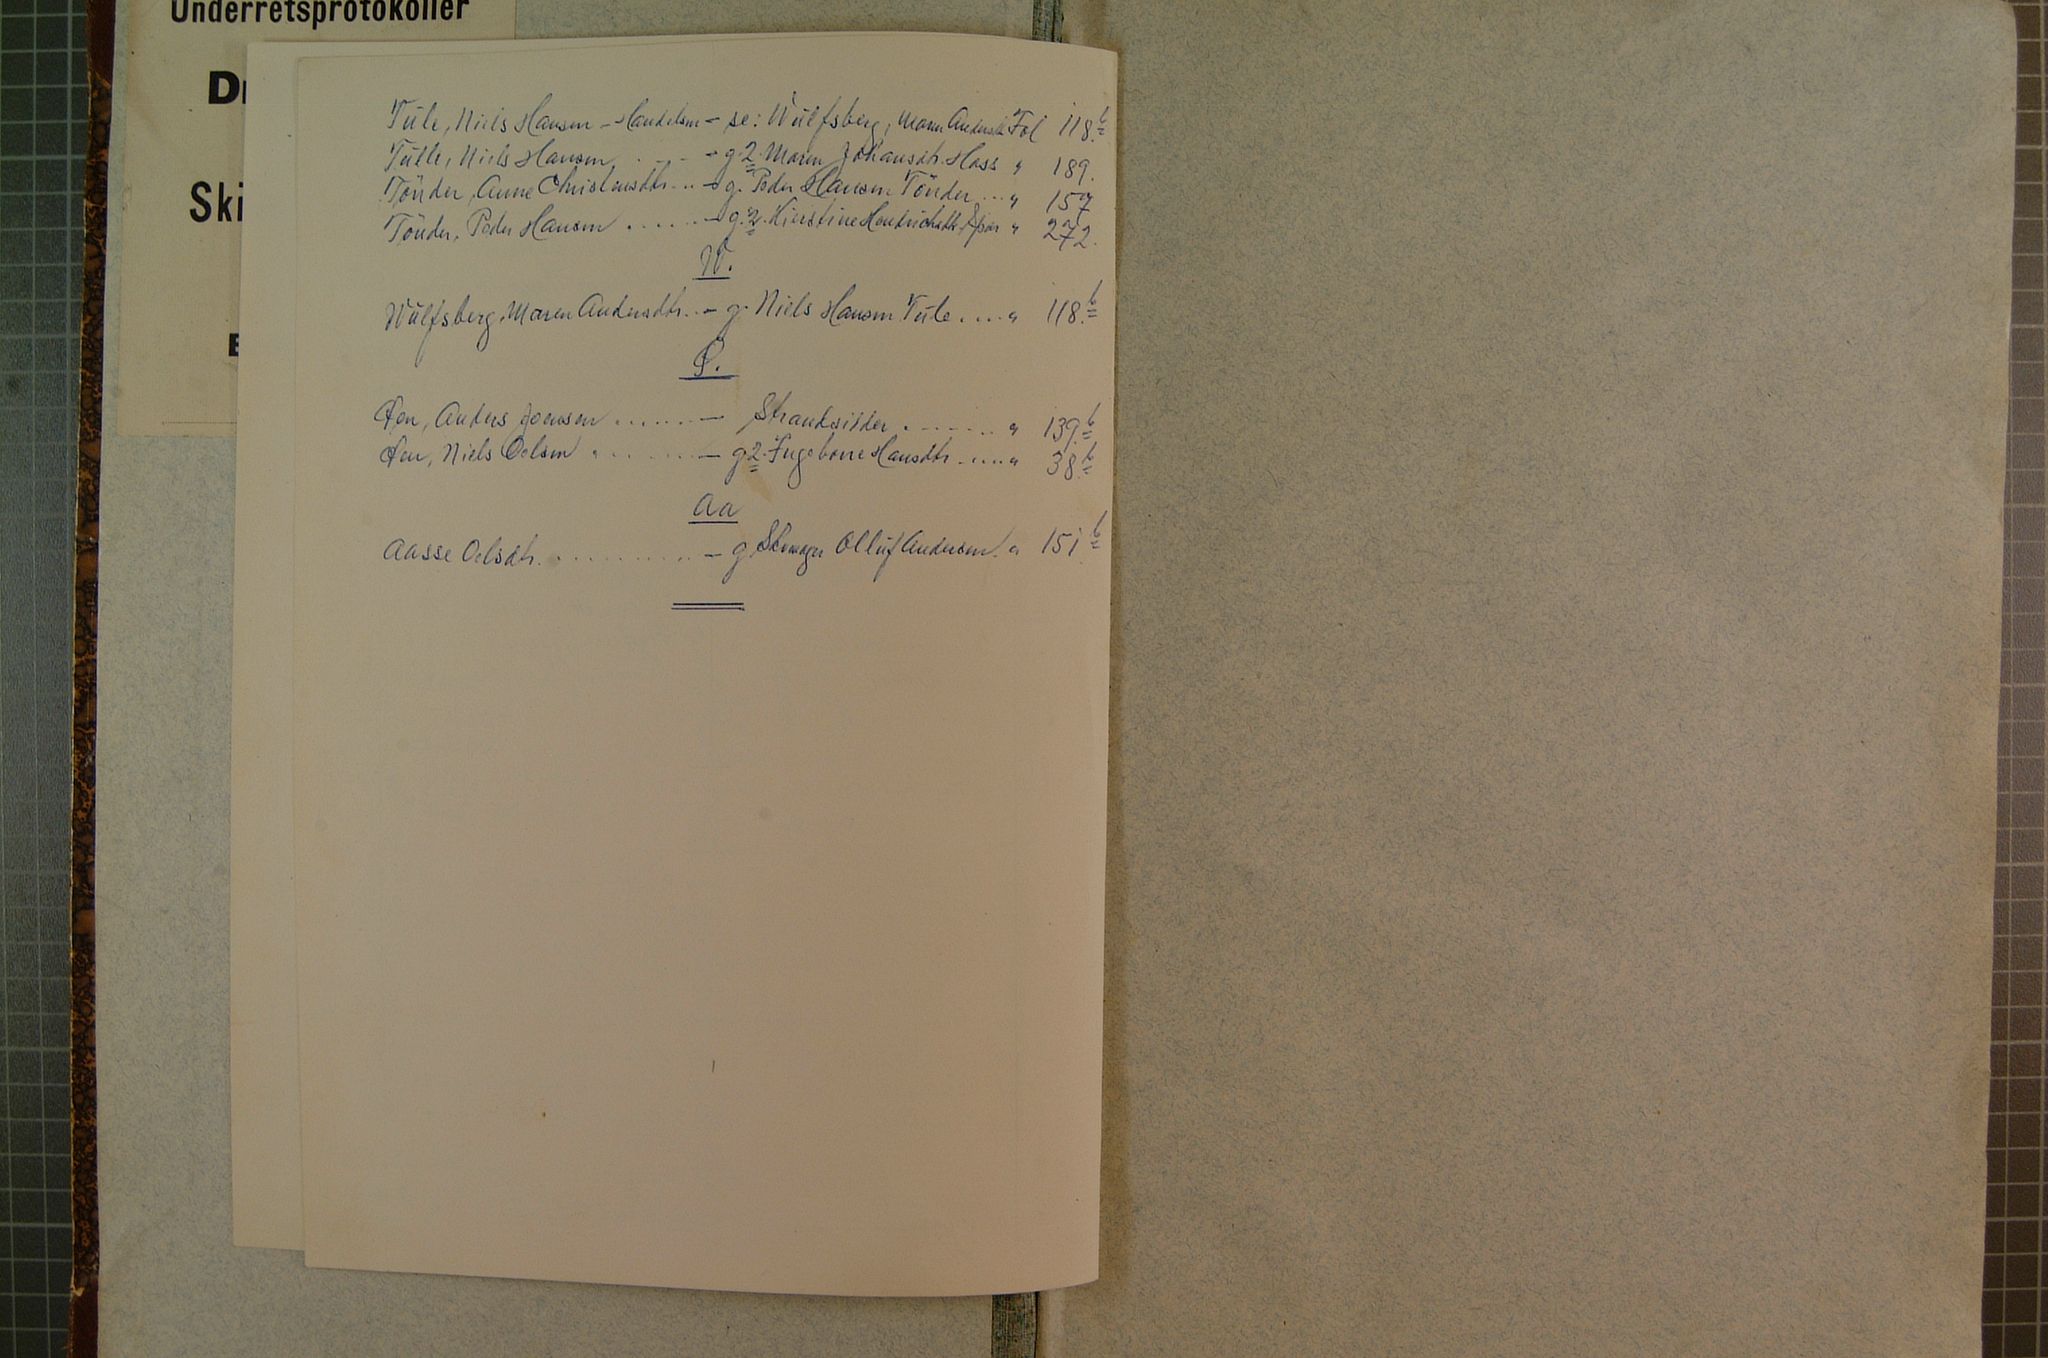 Underretsprotokoller
Dr
Ski
E
Tule, Niels Hansen - Handelsm - se: Wülfsberg, Maren Andersdt Fol 118.b
Tulle, Niels Hansen . . . - g. 2. Maren Johansdtr. Hass " 189.
Tönder, Anne Christensdtr. .. - g. Peder Hansen Tönder ... " 157
Tönder, Peder Hansen ...... - g. 2. Kirstine Hendrichsdtr. " 272.
W.
Wülfsberg, Maren Andersdtr. .. - g. Niels Hansen Tule .... " 118.b
Ø.
Øen, Anders Joensen ....... - Strandsidder ....... " 139.b
Øen, Niels Oelsen ....... - g 2. Ingeborre Hansdtr. .... " 38.b
Aa
Aasse Oelsdtr. .......... - g. Olluf Andersen. " 151.b